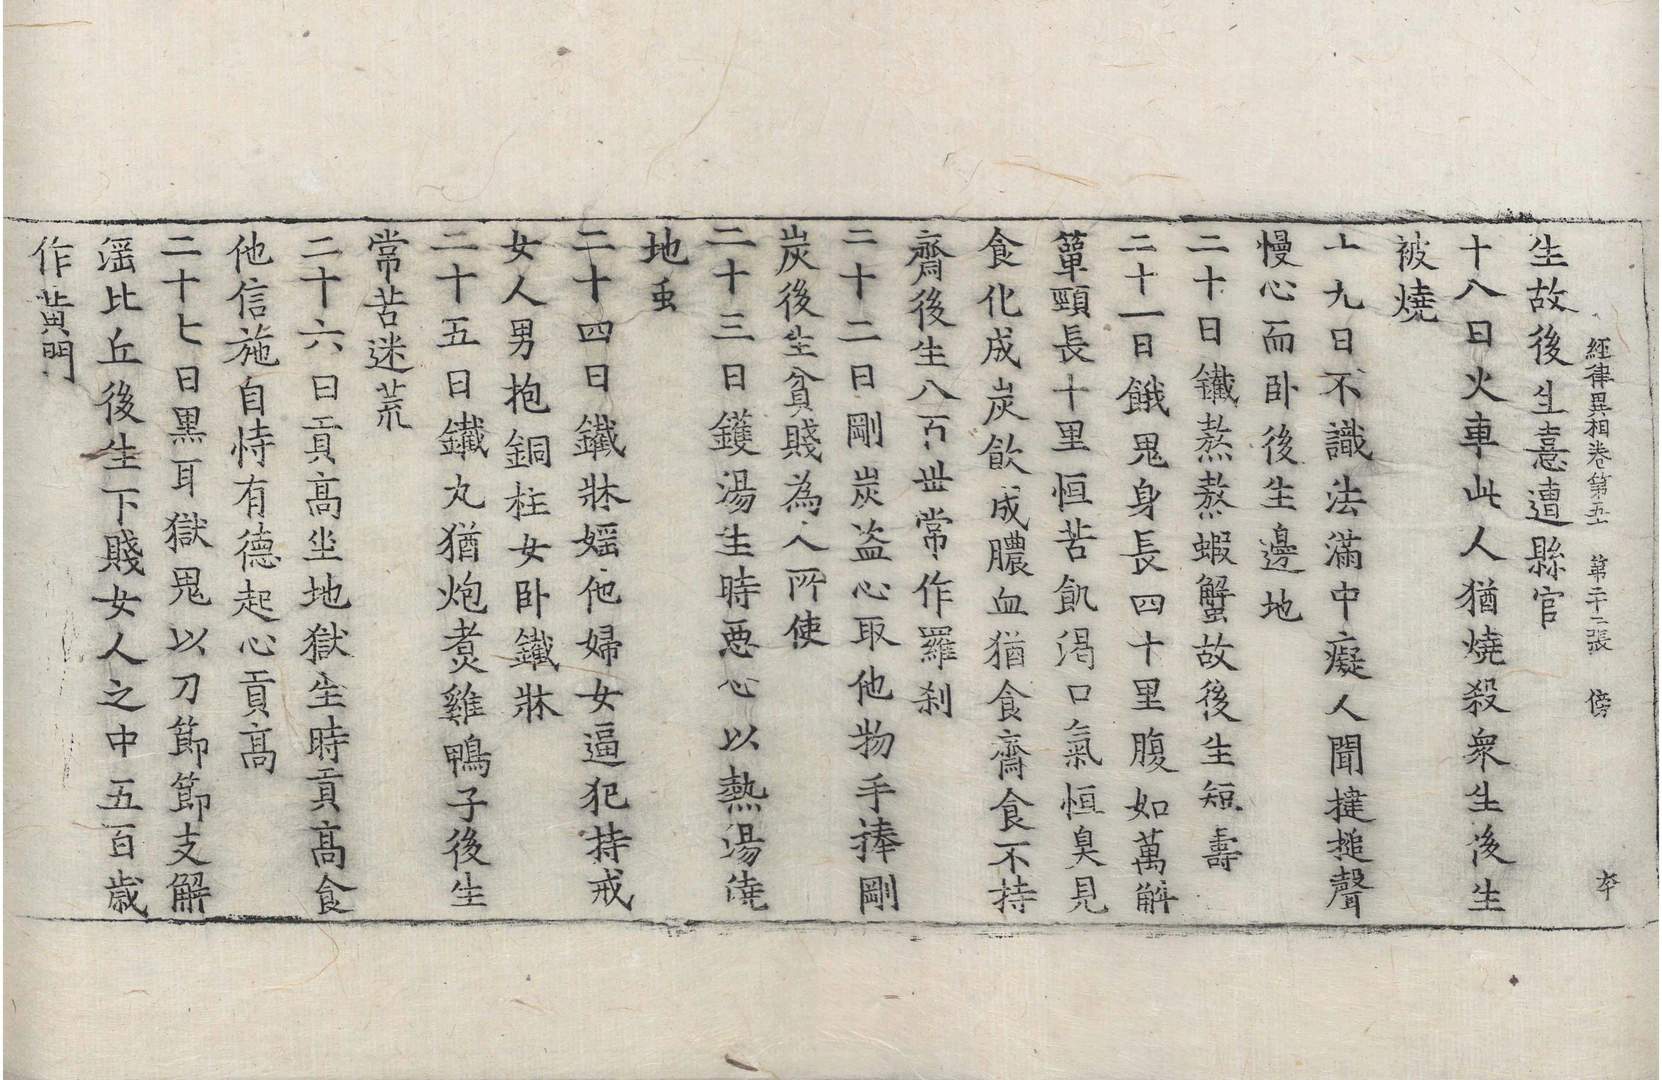 經律異相卷第五十 第二十二張 傍 卒
生故後生憙遭縣官
十八曰火車此人猶燒殺衆生後生
被燒
十九曰不識法滿中癡人聞揵搥聲
慢心而卧後生邊地
二十曰鐵熬熬蝦蟹故後生短壽
二十一曰餓鬼身長四十里腹如萬斛
簞頸長十里恒苦飢渴口氣恒臭見
食化成炭飲成膿血猶食齋食不持
齋後生八百世常作羅刹
二十二曰剛炭盗心取他物手捧剛
炭後生貧賤為人所使
二十三曰鑊湯生時惡心以熱湯澆
地虫
二十四曰鐵牀婬他婦女逼犯持戒
女人男抱銅柱女卧鐵牀
二十五曰鐵丸猶炮煑雞鴨子後生
常苦迷荒
二十六曰貢高坐地獄生時貢高食
他信施自恃有德起心貢高
二十七曰黑耳獄鬼以刀節節支解
婬比丘後生下賤女人之中五百歲
作黄門